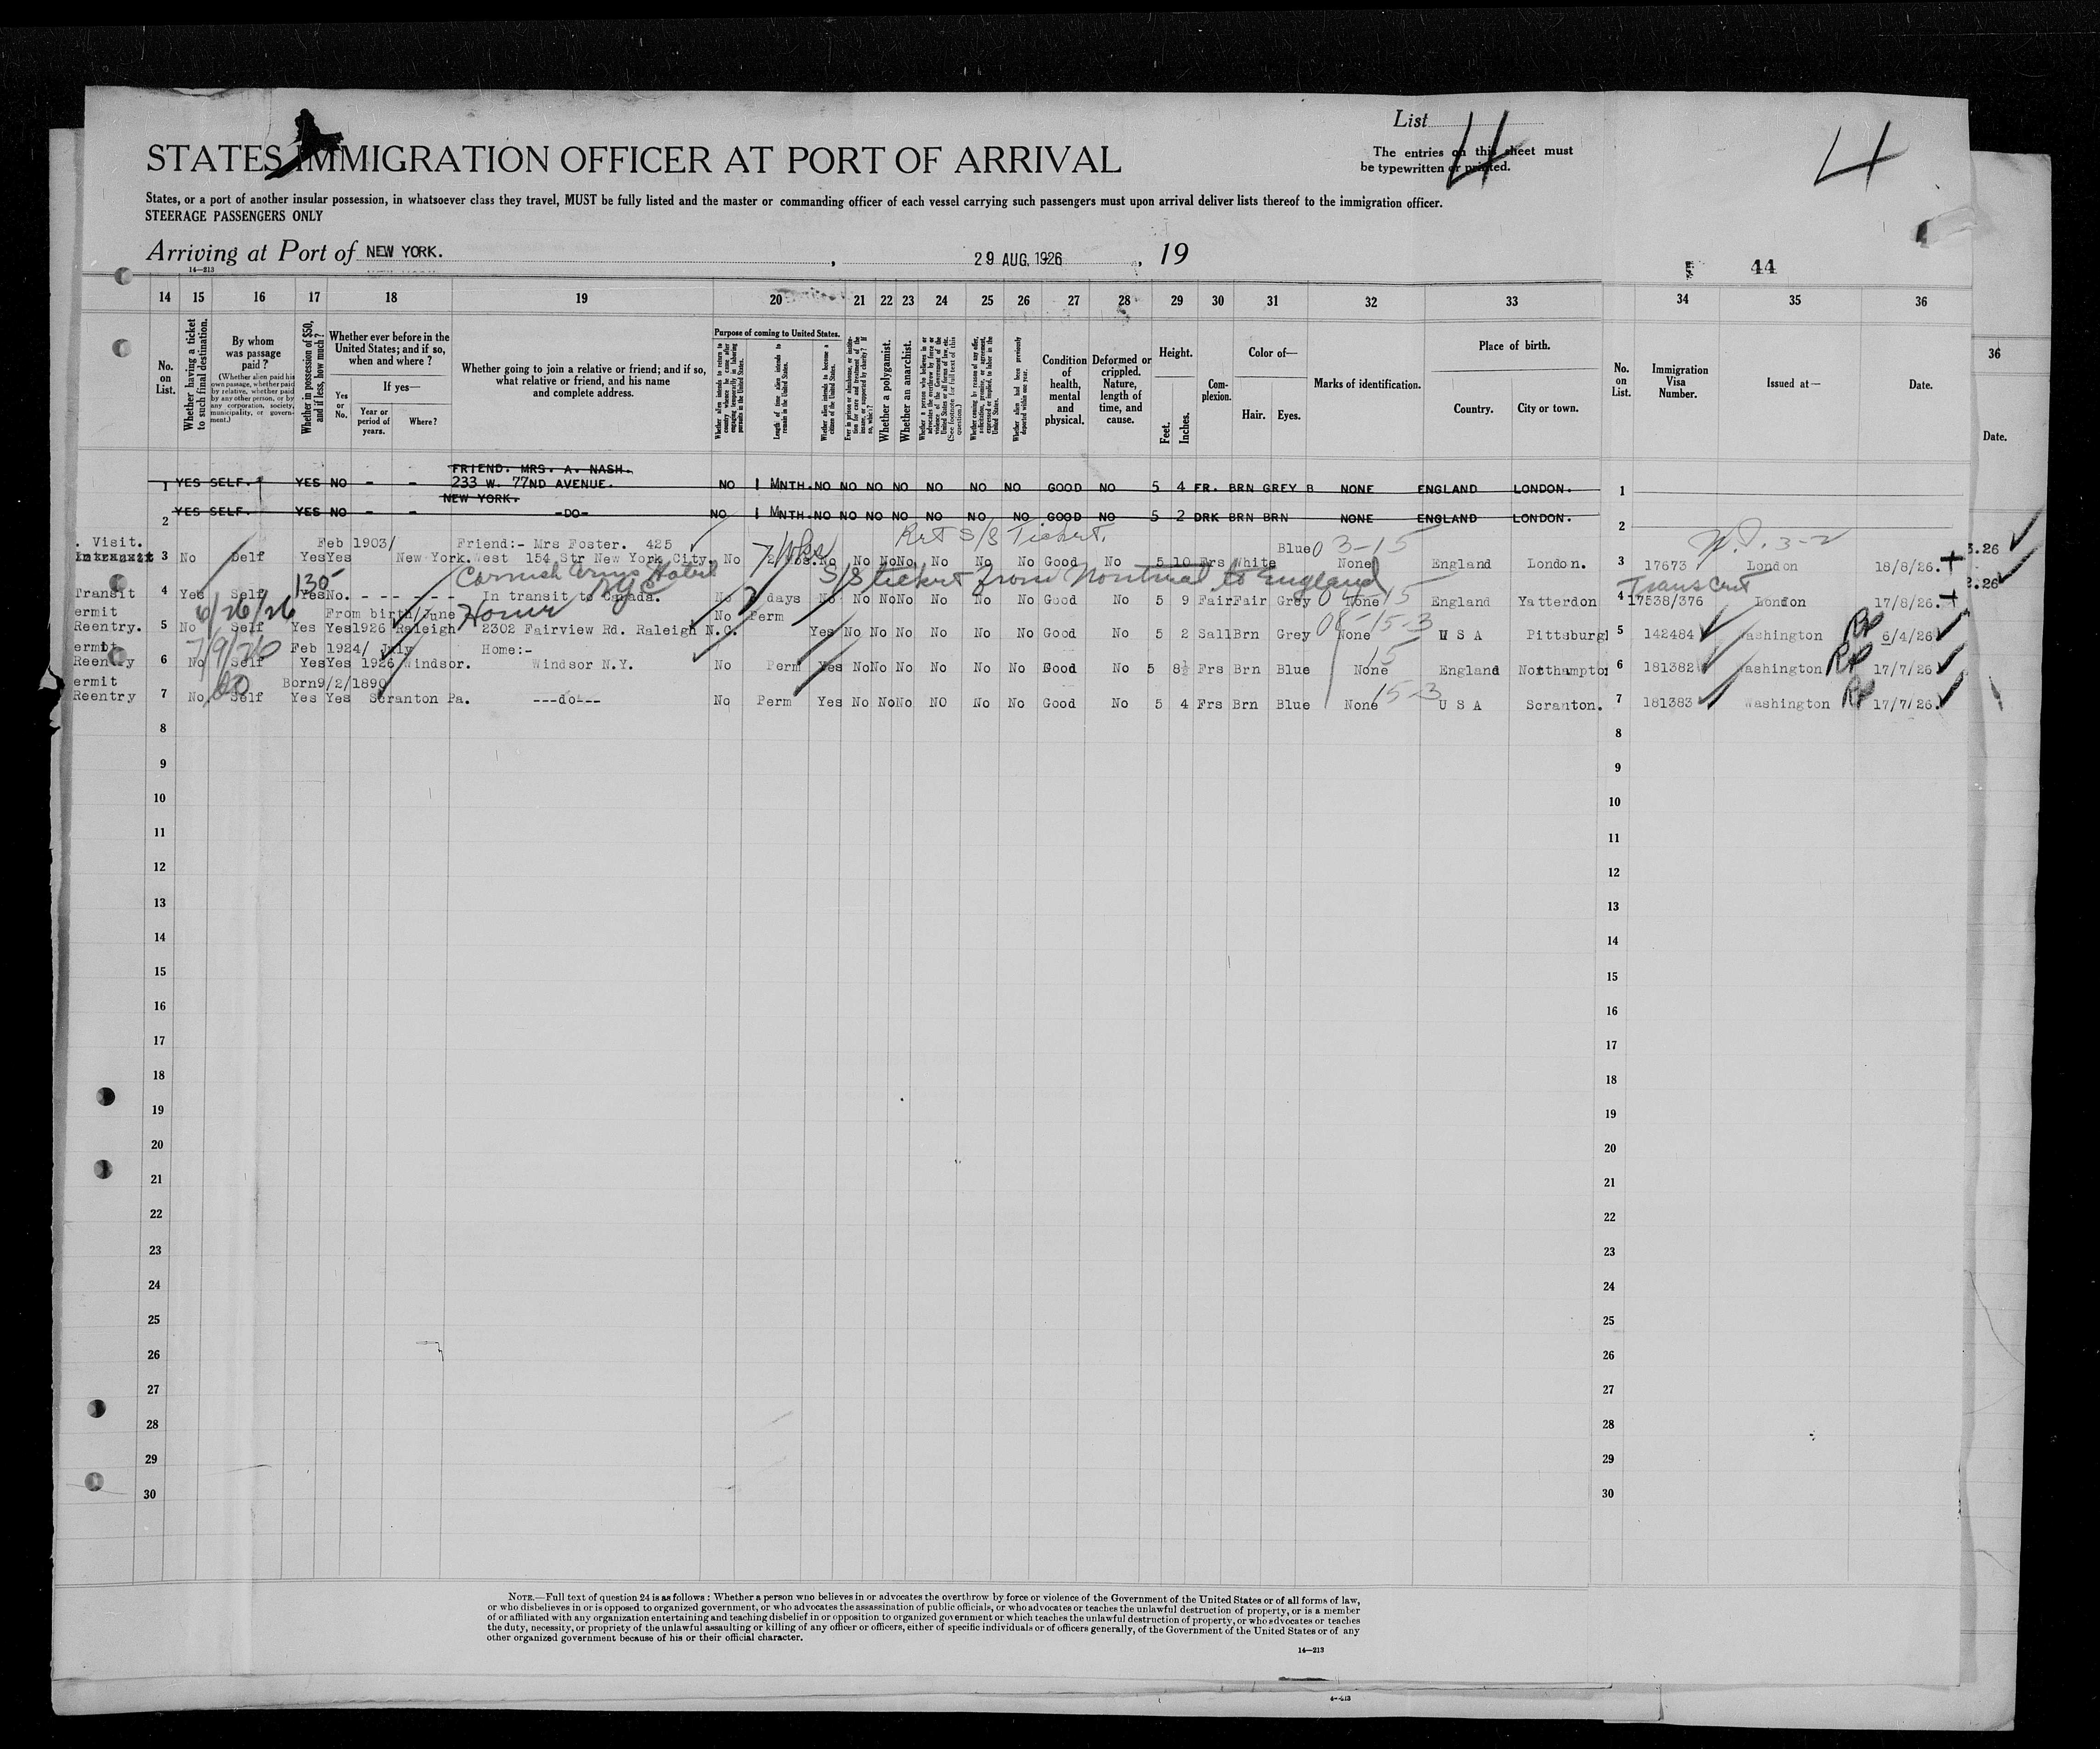 List 4
4
STATES IMMIGRATION OFFICER AT PORT OF ARRIVAL
The entries on this sheet must
be typewritten or printed.
States, or a port of another insular possession, in whatsoever class they travel, MUST be fully listed and the master or commanding officer of each vessel carrying such passengers must upon arrival deliver lists thereof to the immigration officer.
STEERAGE PASSENGERS ONLY
Arriving at Port of NEW YORK. , 29 AUG. 1926 , 19
14—213
44
14 15 16 17 18 19 20 21 22 23 24 25 26 27 28 29 30 31 32 33 34 35 36
36
No. on List.
Whether having a ticket to such final destination.
By whom was passage paid?
(Whether alien paid his own passage, whether paid by relative, whether paid by any other person, or by any corporation, society, municipality, or government.)
Whether in possession of $50, and if less, how much?
Whether ever before in the United States; and if so, when and where?
Yes or No.
If yes—
Year or period of years.
Where?
Whether going to join a relative or friend; and if so, what relative or friend, and his name and complete address.
Purpose of coming to United States.
Whether alien intends to return to country whence he came after engaging temporarily in laboring pursuits in the United States.
Length of time alien intends to remain in the United States.
Whether alien intends to become a citizen of the United States.
Ever in prison or almshouse, or institution for care and treatment of the insane, or supported by charity? If so, which?
Whether a polygamist.
Whether an anarchist.
Whether a person who believes in or advocates the overthrow by force or violence of the Government of the United States or all forms of law, etc. (See footnote for full text of this question.)
Whether coming by reason of any offer, solicitation, promise, or agreement, expressed or implied, to labor in the United States.
Whether alien had been previously deported within one year.
Condition of health, mental and physical.
Deformed or crippled. Nature, length of time, and cause.
Height.
Feet.
Inches.
Complexion.
Color of—
Hair.
Eyes.
Marks of identification.
Place of birth.
Country.
City or town.
No. on List.
Immigration Visa Number.
Issued at—
Date.
Date.
FRIEND. MRS. A. NASH.
1 YES SELF. YES NO - - 233 W. 77ND AVENUE. NO 1 MNTH. NO NO NO NO NO NO NO GOOD NO 5 4 FR. BRN GREY B NONE ENGLAND LONDON. 1
NEW YORK.
2 YES SELF. YES NO - - -DO- NO 1 MNTH. NO NO NO NO NO NO NO GOOD NO 5 2 DRK BRN BRN NONE ENGLAND LONDON. 2
Ret S/S Ticket.
. Visit. Feb 1903/ Friend:- Mrs Foster. 425 7 Wks Blue 03-15 3-2
3 No Self Yes Yes New York. West 154 Str New York City. No No No No No No No No Good No 5 10 Frs White None England London. 3 17673 London 18/8/26. +
Cornish Arms Hotel NYC S/S ticket from Montreal to England
130 Trans Cert
Transit 4 Yes Self Yes No. - - - - - - In transit to Canada. No days No No No No No No No Good No 5 9 Fair Fair Grey None England Yatterdon 4 17538/376 London 17/8/26. +
6/26/26 Home 08-15-3
ermit From birth/June No Perm
Reentry. 5 No Self Yes Yes 1926 Raleigh 2302 Fairview Rd. Raleigh N.C. Yes No No No No No No Good No 5 2 Sall Brn Grey None U S A Pittsburg 5 142484 Washington 6/4/26
7/9/26 15
ermit Feb 1924/ July Home:-
Reentry 6 No Self Yes Yes 1926 Windsor. Windsor N.Y. No Perm Yes No No No No No No Good No 5 8½ Frs Brn Blue None England Northampto 6 181382 Washington 17/7/26
do 15-3
ermit Born 9/2/1890
Reentry 7 No Self Yes Yes Scranton Pa. ---do--- No Perm Yes No No No NO No No Good No 5 4 Frs Brn Blue None U S A Scranton. 7 181383 Washington 17/7/26.
8 8
9 9
10 10
11 11
12 12
13 13
14 14
15 15
16 16
17 17
18 18
19 19
20 20
21 21
22 22
23 23
24 24
25 25
26 26
27 27
28 28
29 29
30 30
NOTE.—Full text of question 24 is as follows: Whether a person who believes in or advocates the overthrow by force or violence of the Government of the United States or of all forms of law,
or who disbelieves in or is opposed to organized government, or who advocates the assassination of public officials, or who advocates or teaches the unlawful destruction of property, or is a member
of or affiliated with any organization entertaining and teaching disbelief in or opposition to organized government or which teaches the unlawful destruction of property, or who advocates or teaches
the duty, necessity, or propriety of the unlawful assaulting or killing of any officer or officers, either of specific individuals or of officers generally, of the Government of the United States or of any
other organized government because of his or their official character.
14—213